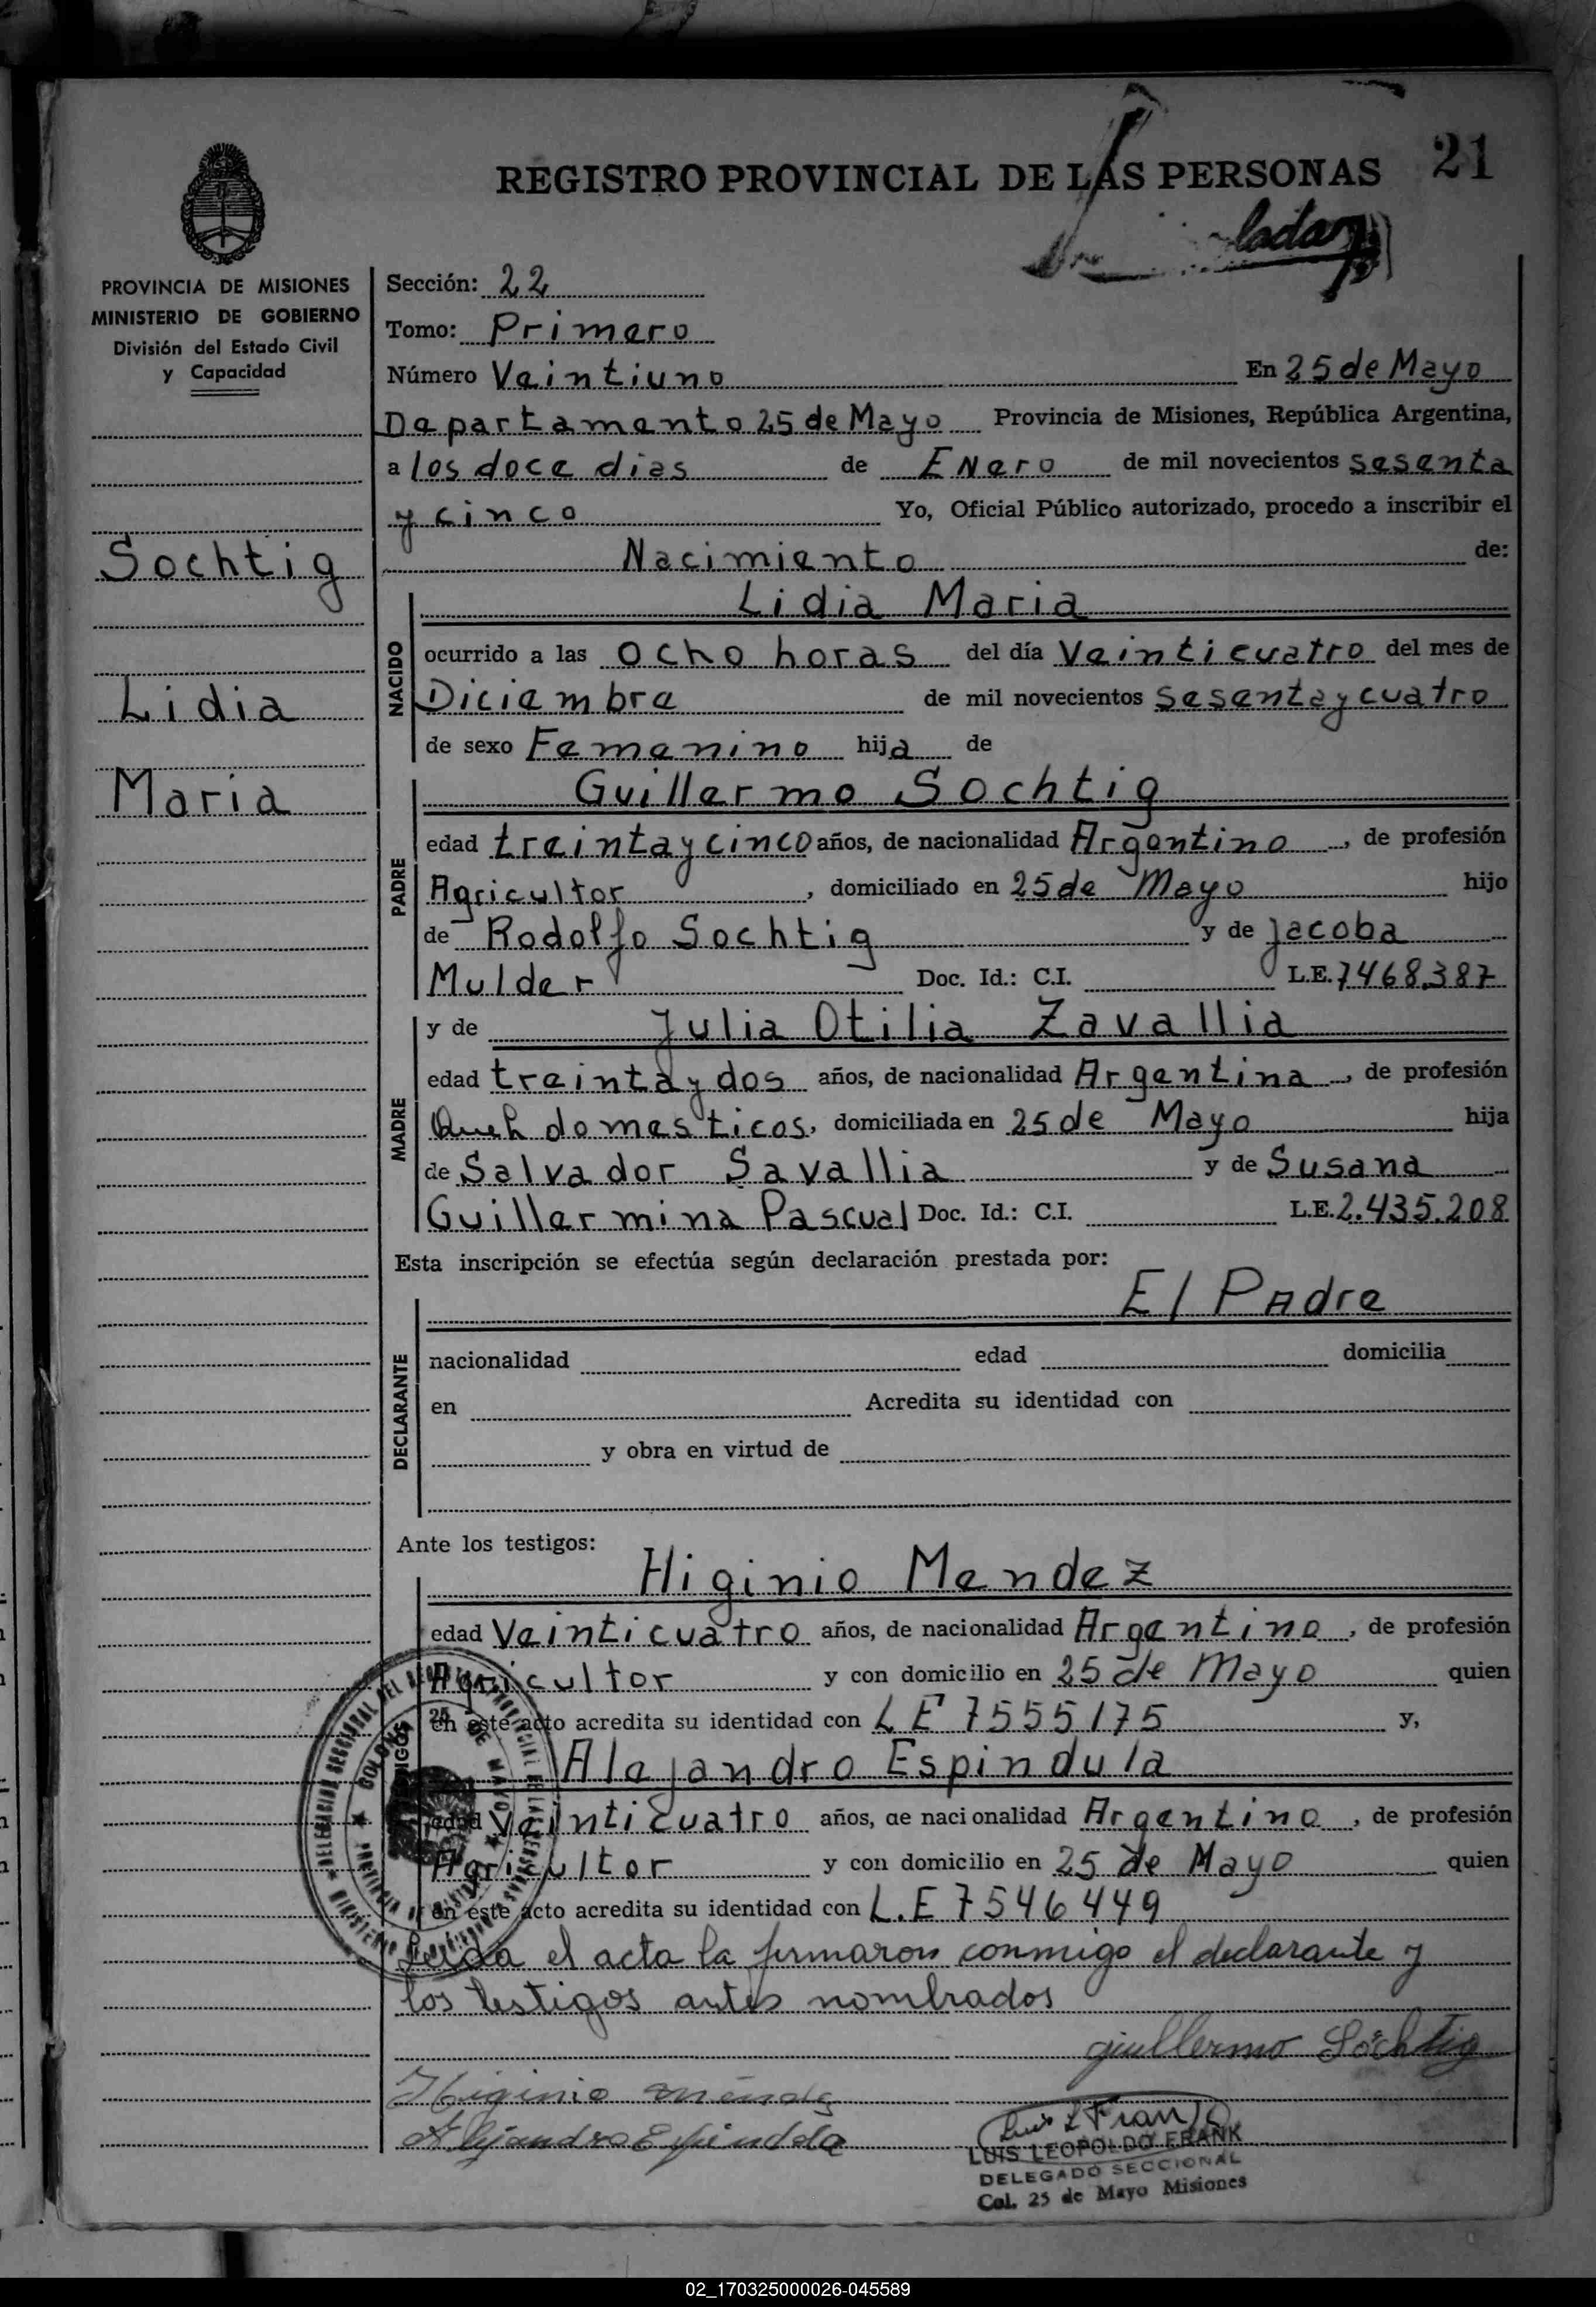 REGISTRO PROVINCIAL DE LAS PERSONAS 21
PROVINCIA DE MISIONES
MINISTERIO DE GOBIERNO
División del Estado Civil
y Capacidad
Sochtig
Lidia
Maria
Sección: 22
Tomo: Primero
Número Veintiuno En 25 de Mayo
Departamento 25 de Mayo Provincia de Misiones, República Argentina,
a los doce dias de Enero de mil novecientos sesenta
y cinco Yo, Oficial Público autorizado, procedo a inscribir el
Nacimiento de:
NACIDO
Lidia Maria
ocurrido a las ocho horas del día Veinticuatro del mes de
Diciembre de mil novecientos sesenta y cuatro
de sexo Femenino hija de
PADRE
Guillermo Sochtig
edad treinta y cinco años, de nacionalidad Argentino, de profesión
Agricultor, domiciliado en 25 de Mayo hijo
de Rodolfo Sochtig y de Jacoba
Mulder Doc. Id.: C.I. L.E. 7468.387
MADRE
y de Julia Otilia Zavallia
edad treinta y dos años, de nacionalidad Argentina, de profesión
domesticos, domiciliada en 25 de Mayo hija
de Salvador Savallia y de Susana
Guillermina Pascual Doc. Id.: C.I. L.E. 2.435.208
Esta inscripción se efectúa según declaración prestada por:
DECLARANTE
El Padre
nacionalidad edad domicilia
en Acredita su identidad con
y obra en virtud de
Ante los testigos:
Higinio Mendez
edad Veinticuatro años, de nacionalidad Argentino, de profesión
Agricultor y con domicilio en 25 de Mayo quien
en este acto acredita su identidad con L E 7555175 y,
Alejandro Espindula
edad Veinticuatro años, de nacionalidad Argentino, de profesión
Agricultor y con domicilio en 25 de Mayo quien
en este acto acredita su identidad con L.E 7546449
Leida el acta la firmaron conmigo el declarante y
los testigos antes nombrados
guillermo Söchtig
Higinio mendez
Alejandro Espindola
Luis L Frank
LUIS LEOPOLDO FRANK
DELEGADO SECCIONAL
Col. 25 de Mayo Misiones
02_170325000026-045589